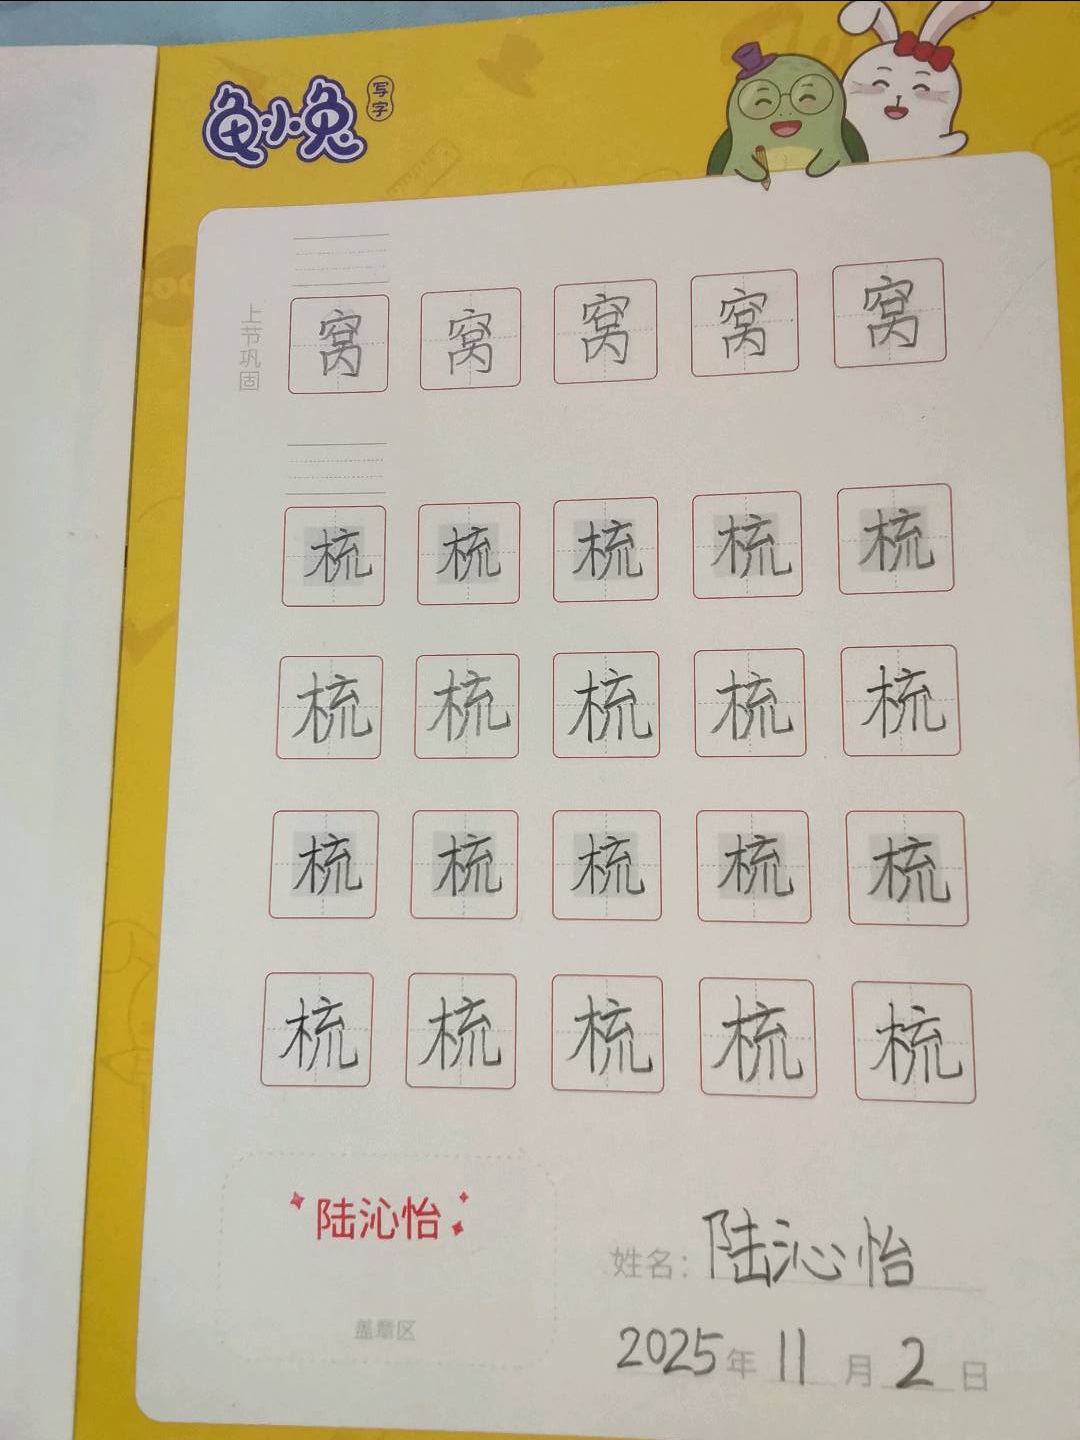 龟小兔
写字
上节巩固
窝 窝 窝 窝 窝
梳 梳 梳 梳 梳
梳 梳 梳 梳 梳
梳 梳 梳 梳 梳
梳 梳 梳 梳 梳
陆沁怡
盖章区
姓名：陆沁怡
2025年11月2日